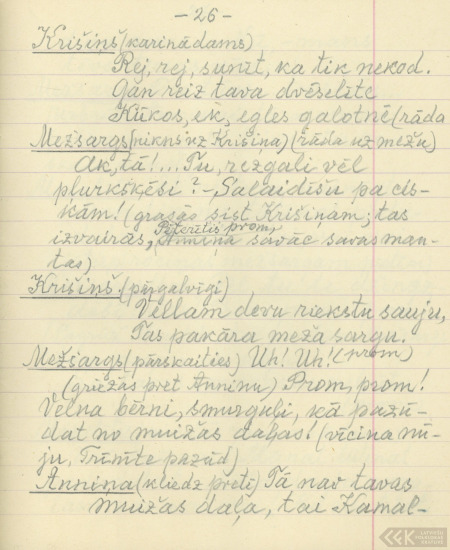 -26-
Krišiņš (karinādams)
Rej, rej, sunīt, ka tik nekod.
Gan reiz tava dvēselīte
Kūkos, ek, egles galotnē (rāda
Mežsargs (nikns uz Krišiņa) (rāda uz mežu)
Ak, tā!... Tu, rezgali vēl
plurkšķēsi? – Salaidīšu pa cis-
kām! (grasās sist Krišiņam; tas
Pēterītis prom,
izvairās, Anniņa savāc savas man-
tas)
Krišiņš. (pārgalvīgi)
Vellam devu riekstu sauju,
Tas pakāra meža sargu.
Mežsargs (pārskaities) Uh! Uh! (prom)
(griežas pret Anniņu) Prom, prom!
Velna bērni, smurguļi, kā pazū-
dat no muižas daļas! (vīcina nū-
ju, Trīnīte pazūd)
Anniņa (kliedz pretī) Tā nav tavas
muižas daļa, tai Kamal-